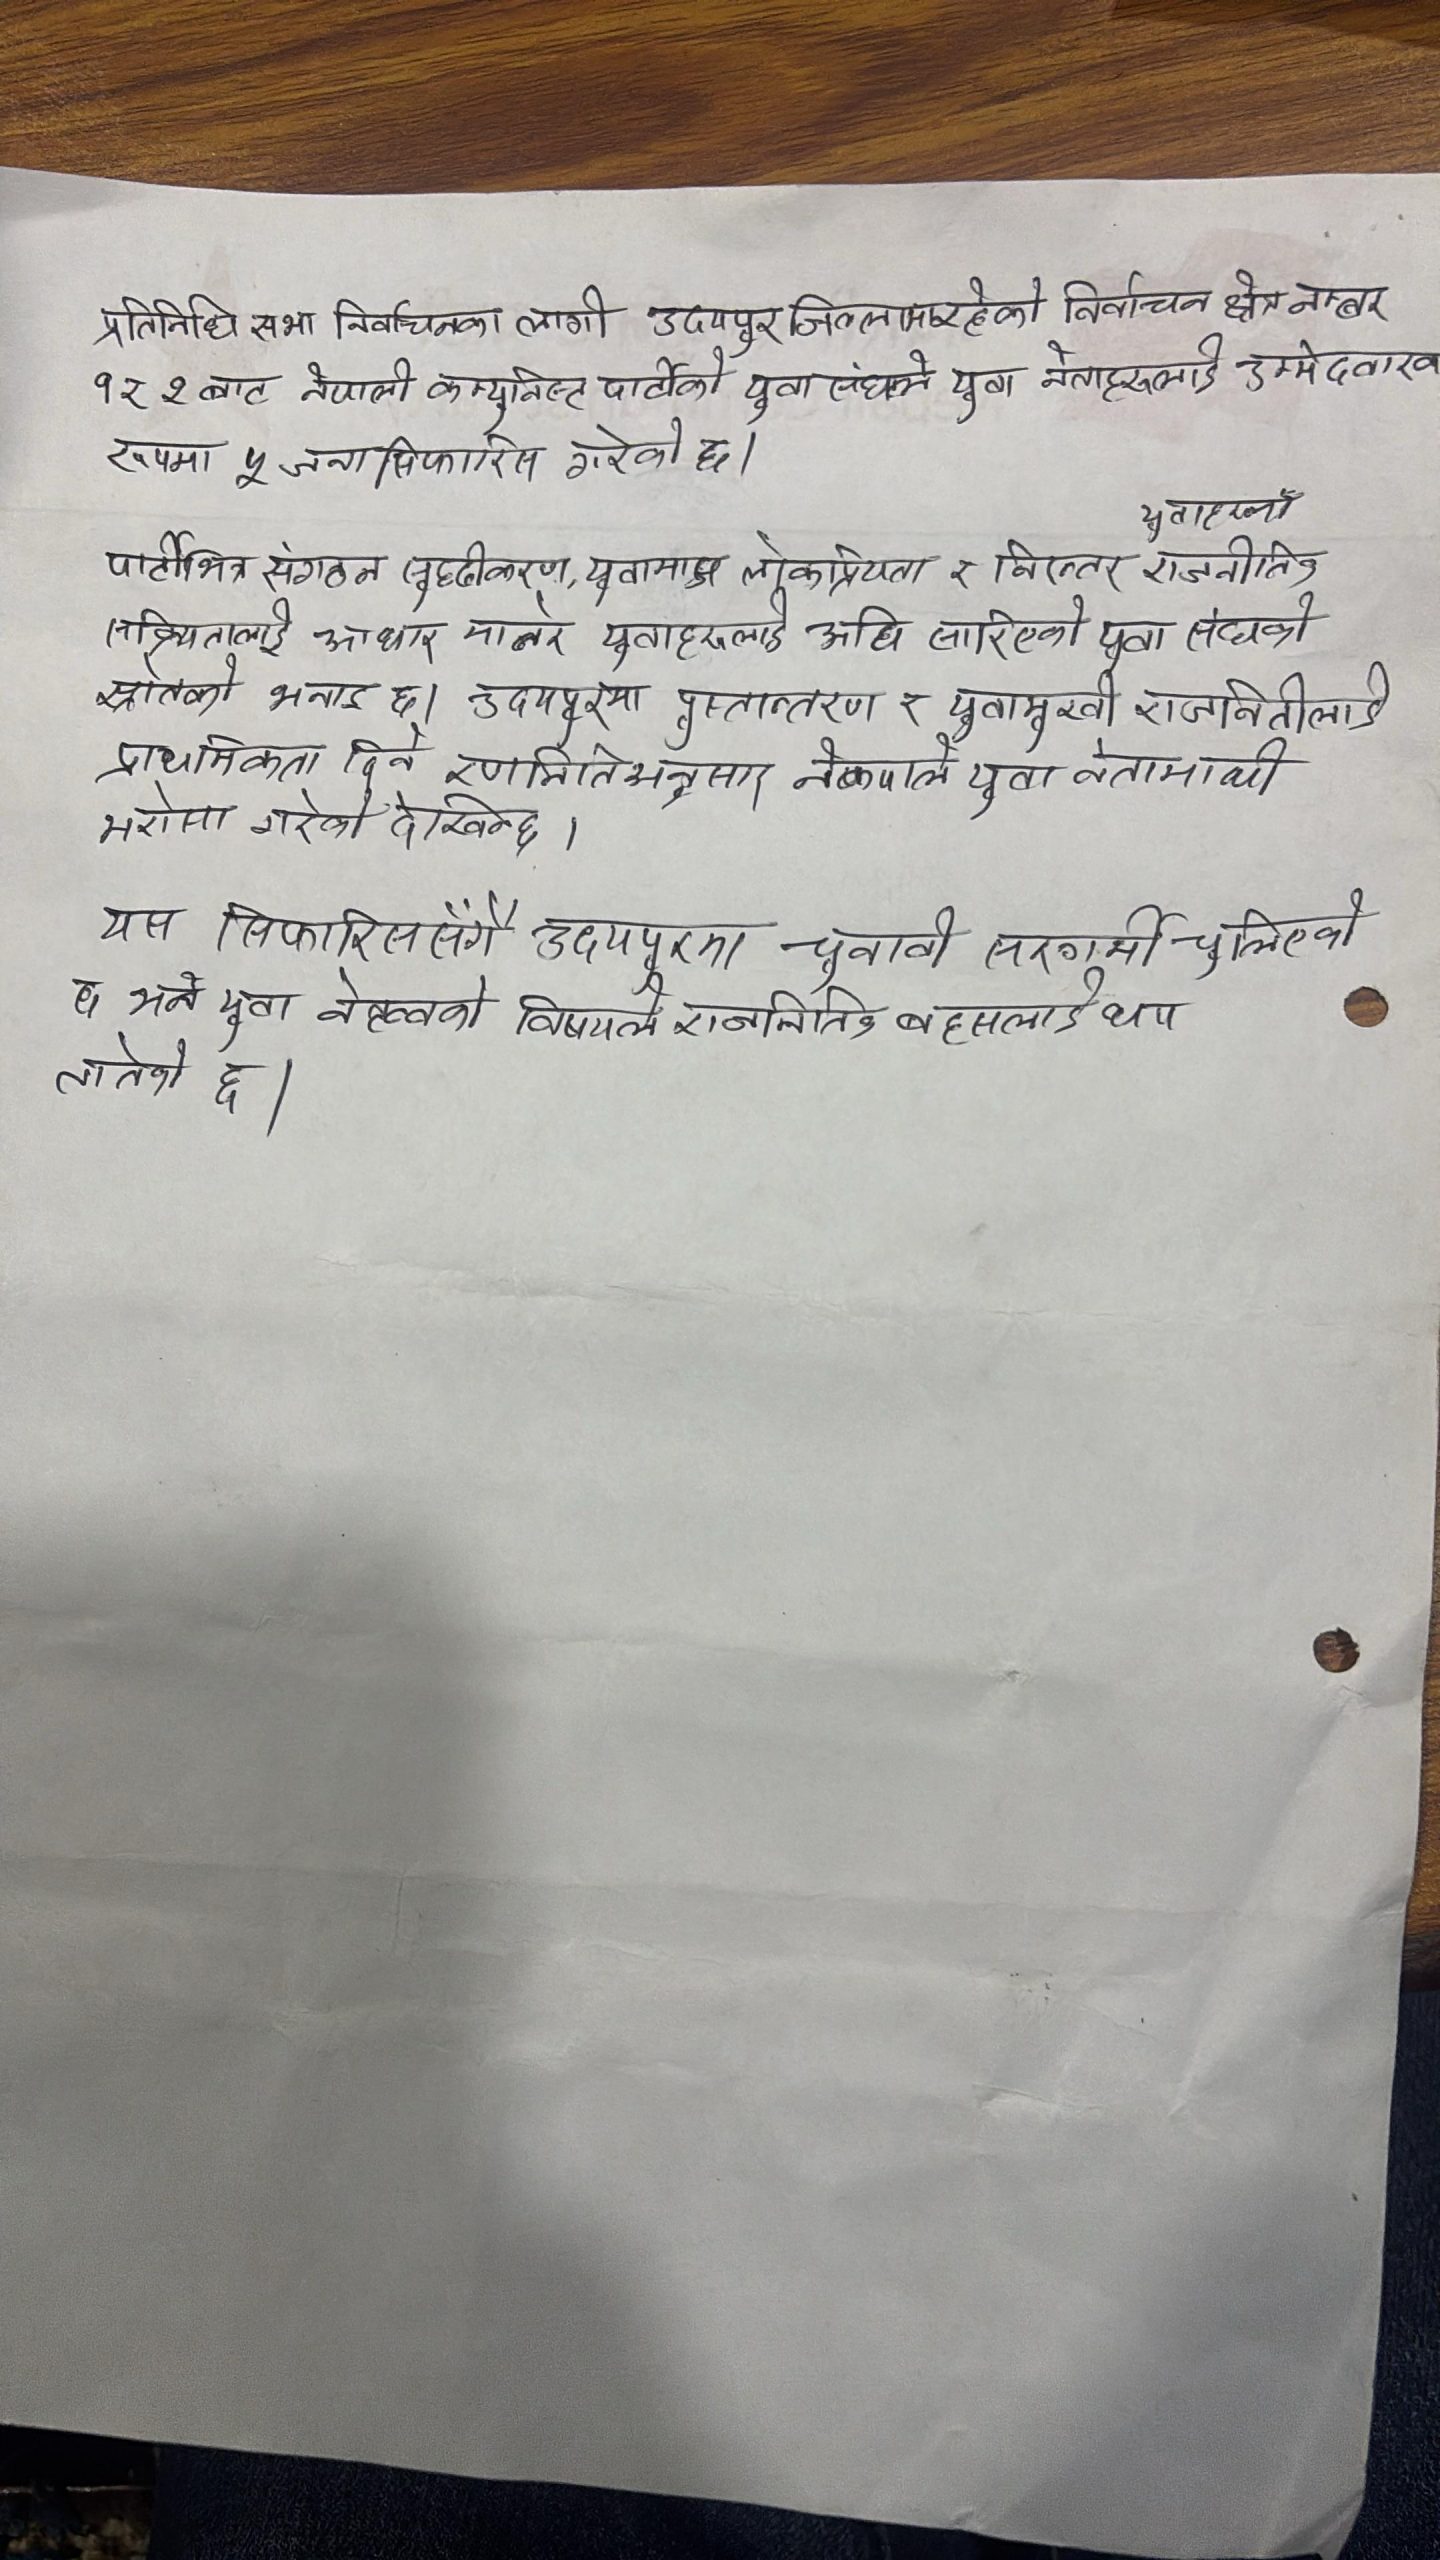 प्रतिनिधि सभा निर्वाचनका लागी उदयपुर जिल्लामा रहेको निर्वाचन क्षेत्र नम्बर
१ र २ बाट नेपाली कम्युनिस्ट पार्टीको युवा संघले युवा नेताहरूलाई उम्मेदवारको
रूपमा ५ जना सिफारिस गरेको छ।
युवाहरूको
पार्टीभित्र संगठन सुदृढीकरण, युवामाझ लोकप्रियता र निरन्तर राजनीतिक
सक्रियतालाई आधार मानेर युवाहरूलाई अघि सारिएको युवा संघको
स्रोतको भनाइ छ। उदयपुरमा पुस्तान्तरण र युवामुखी राजनितीलाई
प्राथमिकता दिने रणनितिअनुसार नेकपाले युवा नेतामाथी
भरोसा गरेको देखिन्छ।
यस सिफारिससँगै उदयपुरमा चुनावी सरगर्मी चुलिएको
छ भने युवा नेतृत्वको विषयले राजनितिक बहसलाई थप
तातेको छ।